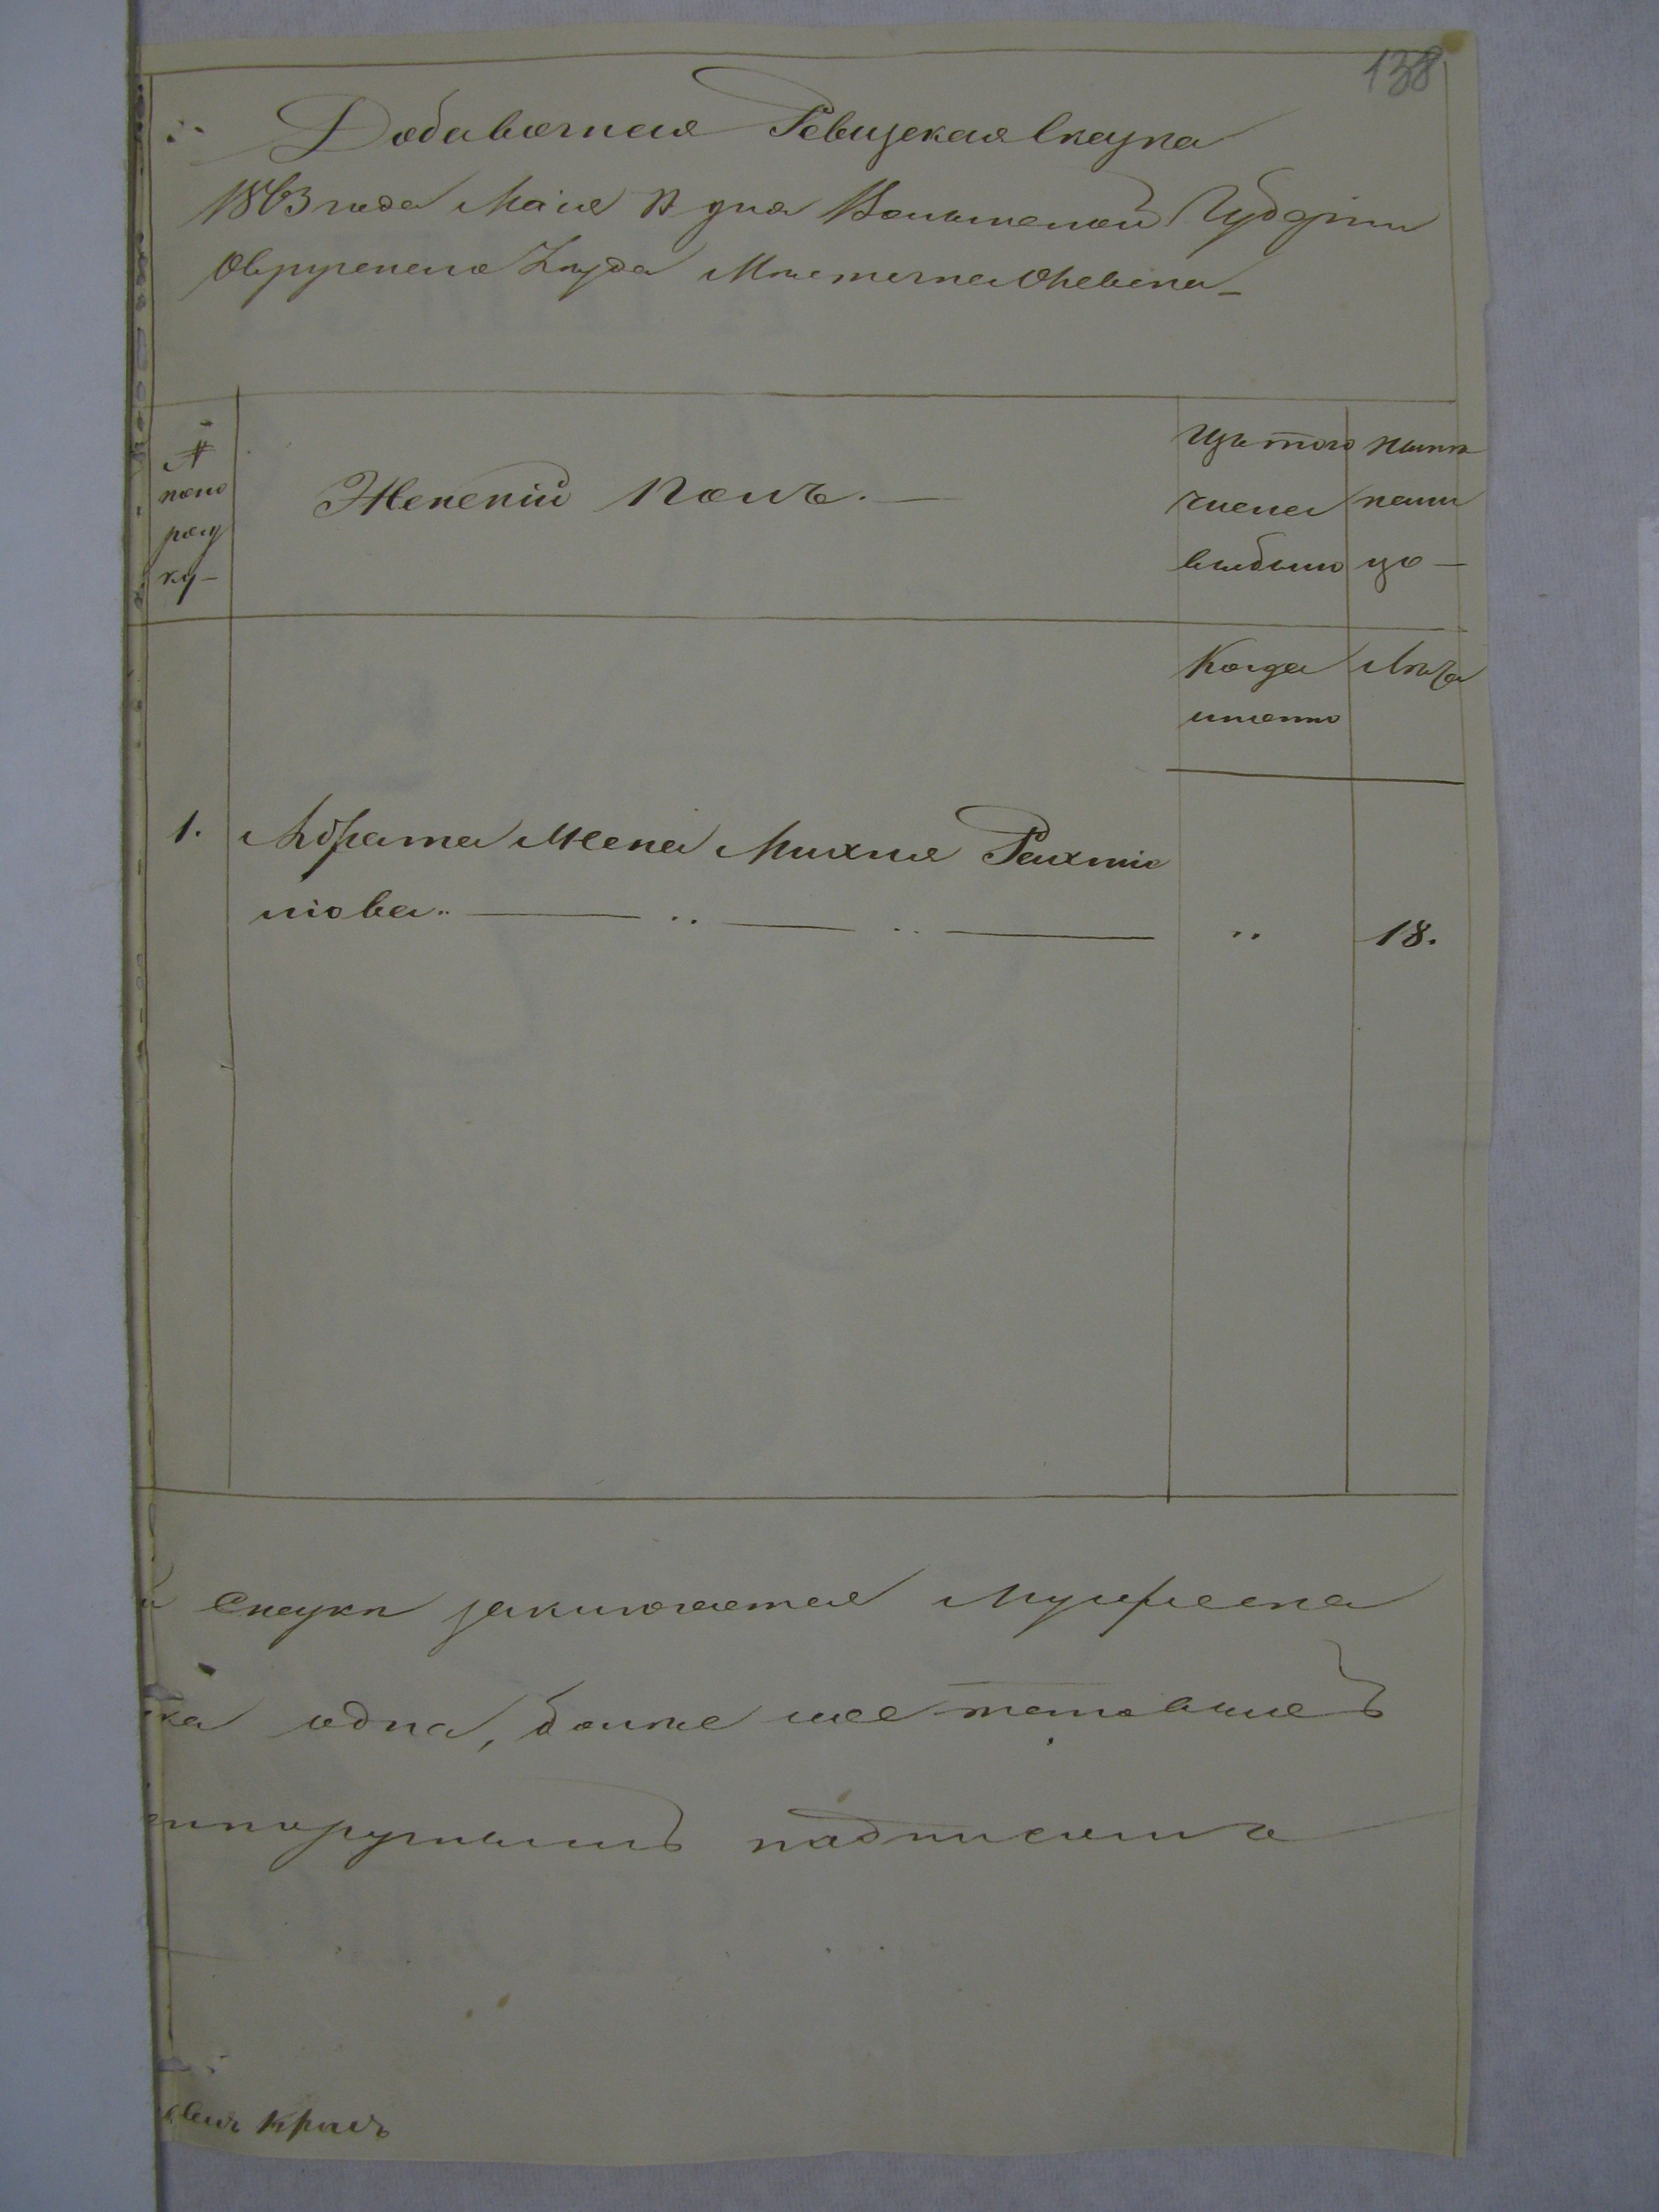 138
Добавочная Ревизская Сказка
1863 года Маія дня Волынской Губерніи
Овручскаго Уѣзда Мѣстечка Олевска
№
попо
ряд
ку
Женскій Полъ.
Изъ того
числа
выбыло
нынѣ
нали
цо
Когда
именно
Лѣта
1. Абрама Жена Михля Рахмие
ліова " 18.
Сказкѣ заключается Мужеска
одна, болѣе
подписомъ
Кролъ